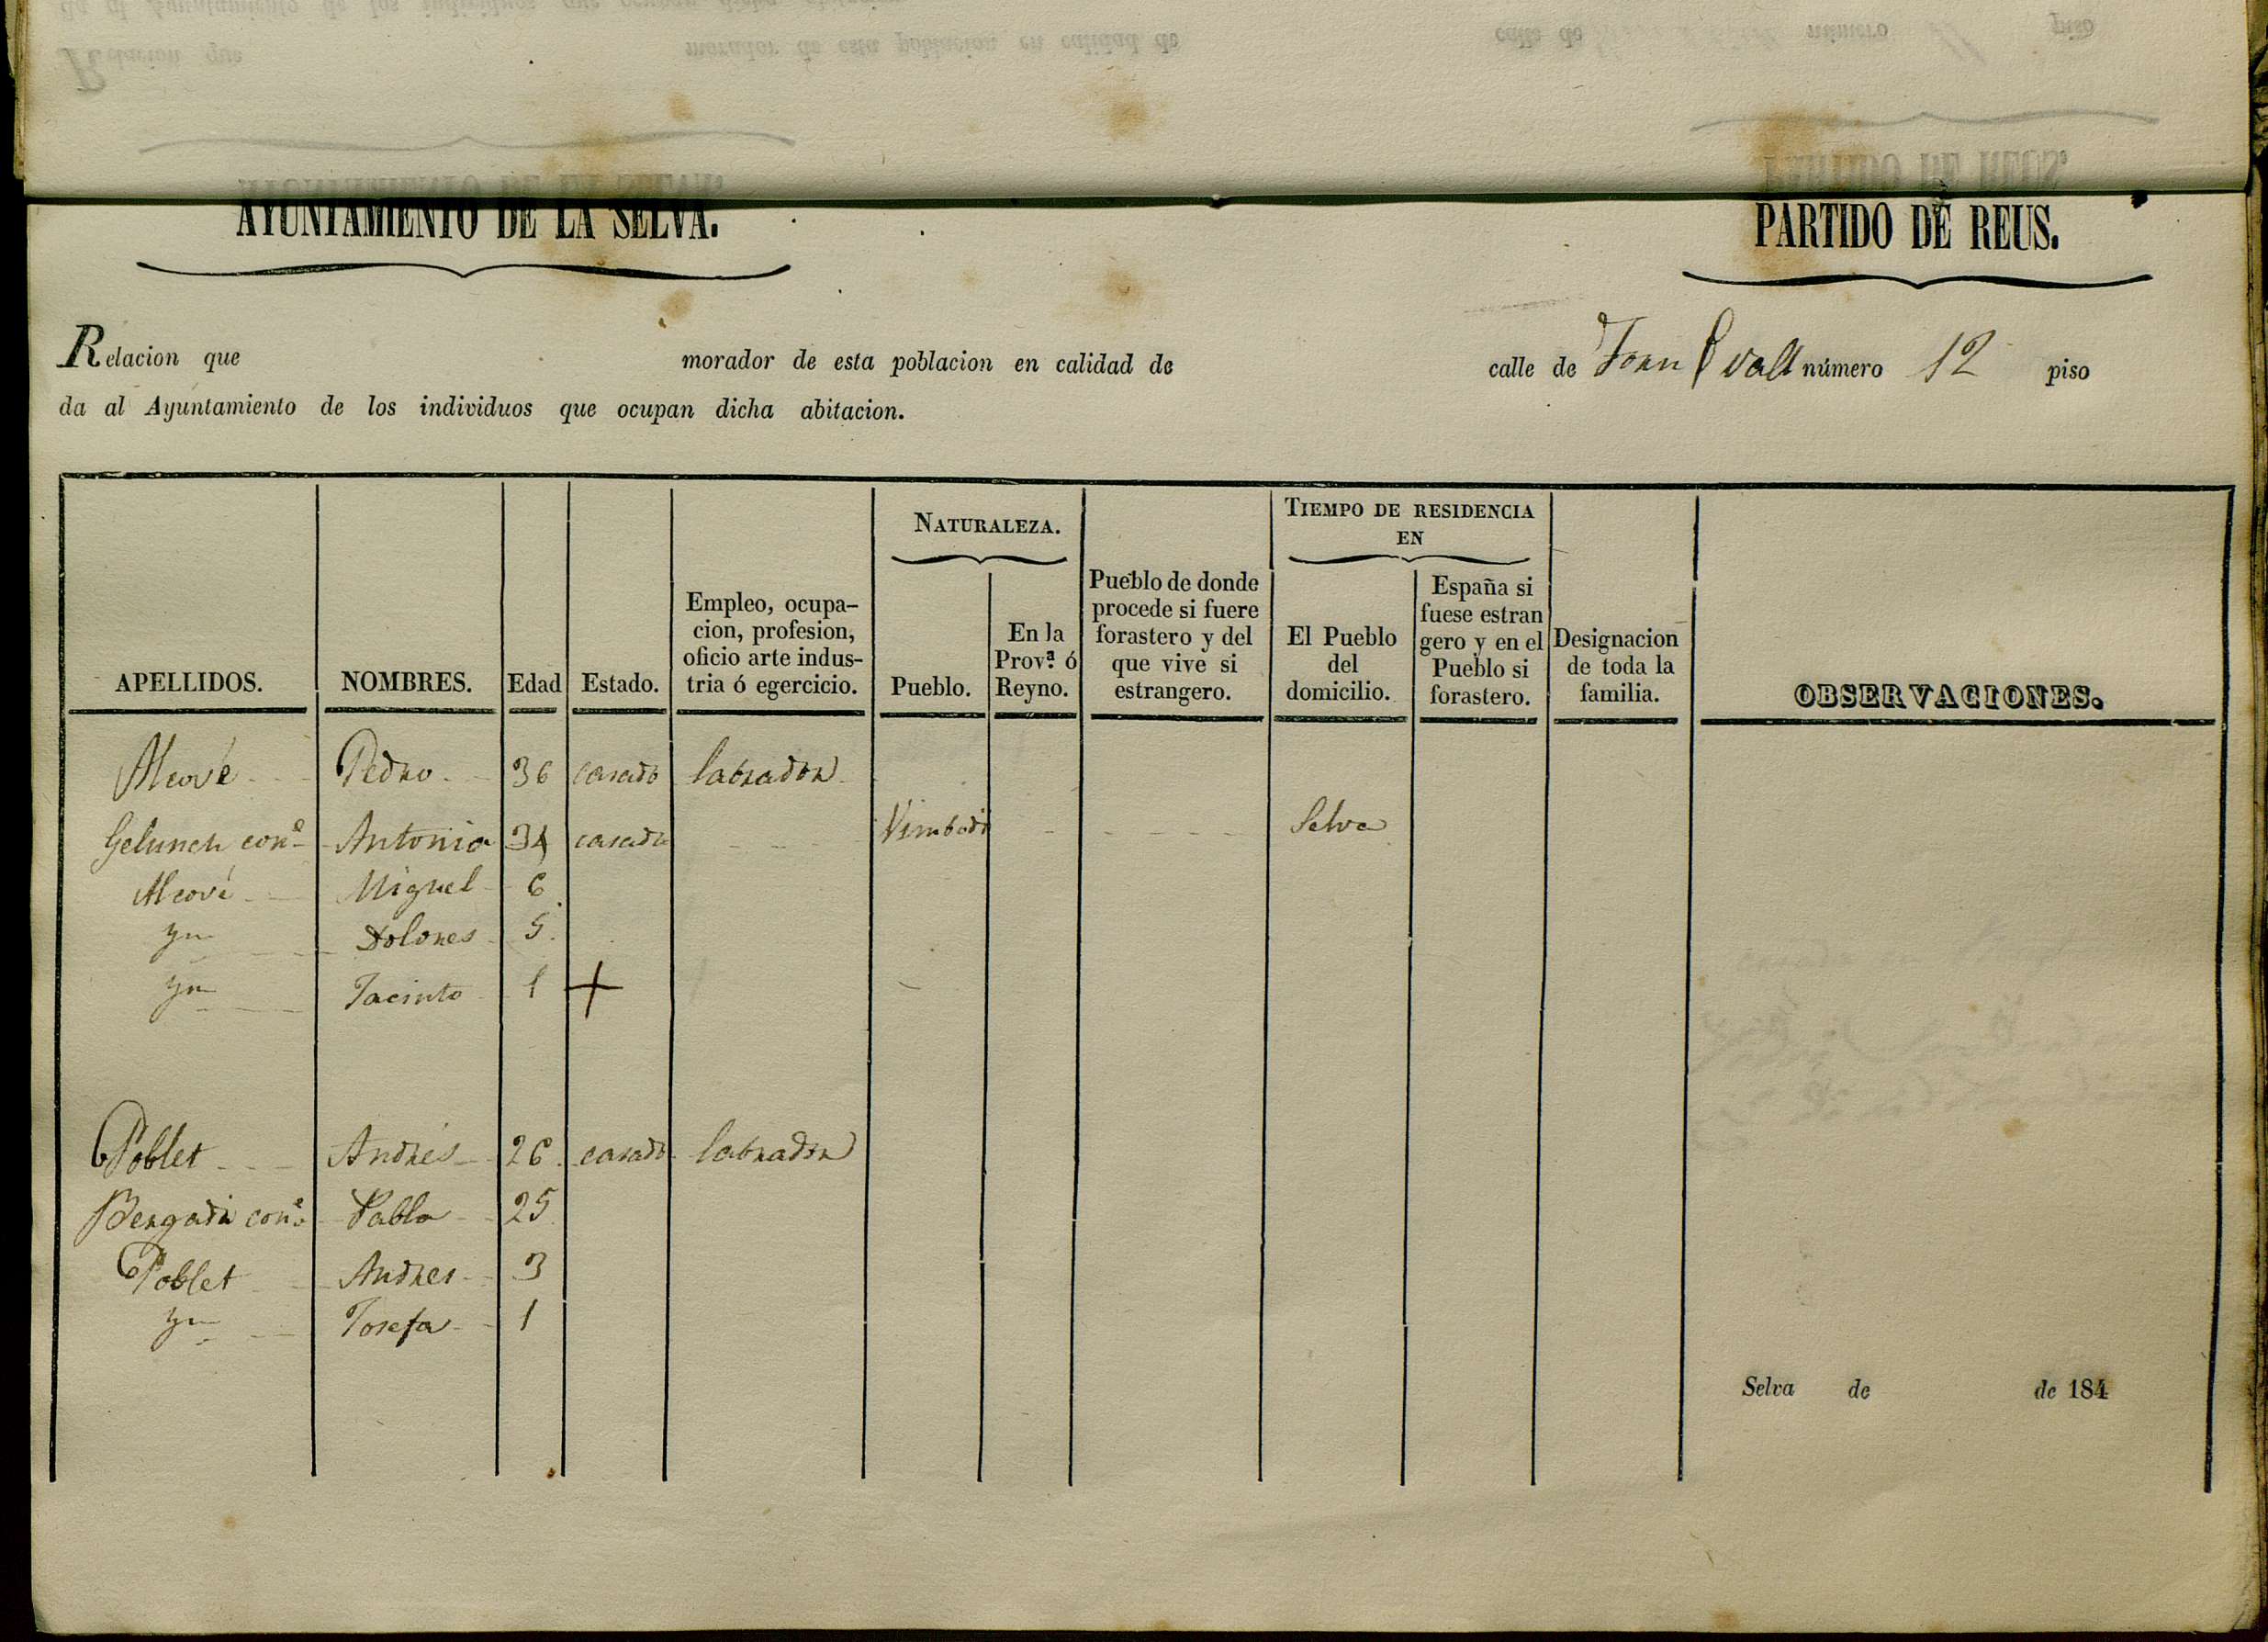 AYUNTAMIENTO DE LA SELVA.
PARTIDO DE REUS.
Relacion que morador de esta poblacion en calidad de calle de número 12 piso
da al Ayuntamiento de los individuos que ocupan dicha abitacion.
APELLIDOS.
NOMBRES.
Edad
Estado.
Empleo, ocupa-
cion, profesion,
oficio arte indus-
tria ó egercicio.
NATURALEZA.
Pueblo.
En la
Prov.ª ó
Reyno.
Pueblo de donde
procede si fuere
forastero y del
que vive si
estrangero.
TIEMPO DE RESIDENCIA
EN
El Pueblo
del
domicilio.
España si
fuese estran
gero y en el
Pueblo si
forastero.
Designacion
de toda la
familia.
OBSERVACIONES.
Alcové Pedro 36 casado labrador
Gelunch con.e Antonia 34 casada Vimbodi Selva
Alcové Miguel 6
Yn Dolores 5
Yn Jacinto 1 +
Poblet Andrés 26 casado labrador
Bergadá con.e Pabla 25
Poblet Andres 3
Yn Josefa 1
Selva de de 184